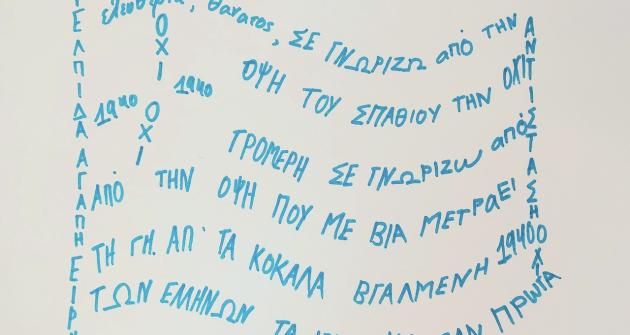 ελευθερία, θανατος, ΣΕ ΓΝΩΡΙΖΩ από ΤΗΝ
ΟΧΙ
1940
ΟΨΗ ΤΟΥ ΣΠΑΘΙΟΥ ΤΗΝ
ΟΧΙ
1940
ΟΧΙ
ΤΡΟΜΕΡΗ ΣΕ ΓΝΩΡΙΖω από
ΑΠΟ ΤΗΝ ΟΨΗ ΠΟΥ ΜΕ ΒΙΑ ΜΕΤΡαΕΙ
ΤΗ ΓΗ. ΑΠ' ΤΑ ΚΟΚΑΛΑ ΒΓΑΛΜΕΝΗ 1940
ΟΧΙ
ΤΩΝ ΕΛΛΗΝΩΝ ΤΑ ΠΡΩΤΑ
ΕΛΠΙΔΑ ΑΓΑΠΗ ΕΙΡΗ
ΑΝΤΙΣΤΑΣΗ